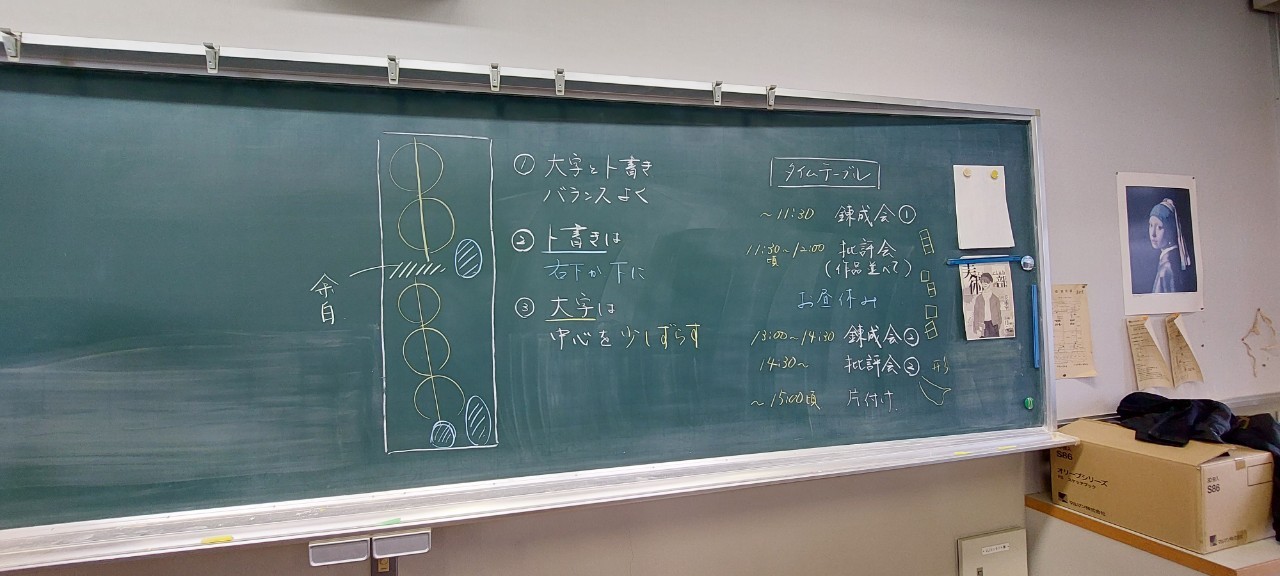 余白
① 大字とト書き
バランスよく
② ト書きは
右下か下に
③ 大字は
中心を少しずらす
タイムテーブル
～11:30 錬成会①
11:30頃～12:00 批評会
(作品並べて)
お昼休み
13:00～14:30 錬成会②
14:30～ 批評会②
形
～15:00頃 片付け
美術部
S86
オリーブシリーズ
S86